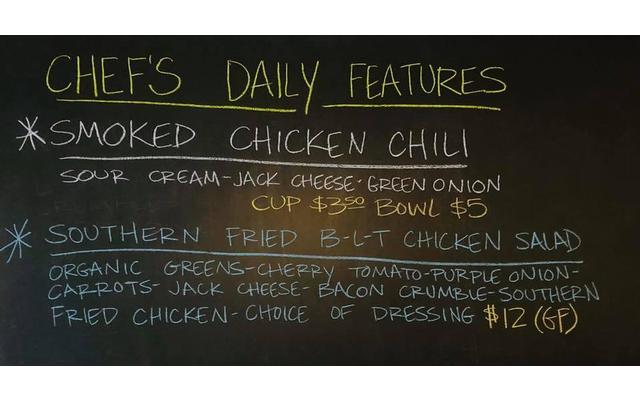 CHEF'S DAILY FEATURES
* SMOKED CHICKEN CHILI
SOUR CREAM-JACK CHEESE-GREEN ONION
CUP $3.50 BOWL $5
* SOUTHERN FRIED B-L-T CHICKEN SALAD
ORGANIC GREENS-CHERRY TOMATO-PURPLE ONION-
CARROTS-JACK CHEESE-BACON CRUMBLE-SOUTHERN
FRIED CHICKEN-CHOICE OF DRESSING $12 (GF)